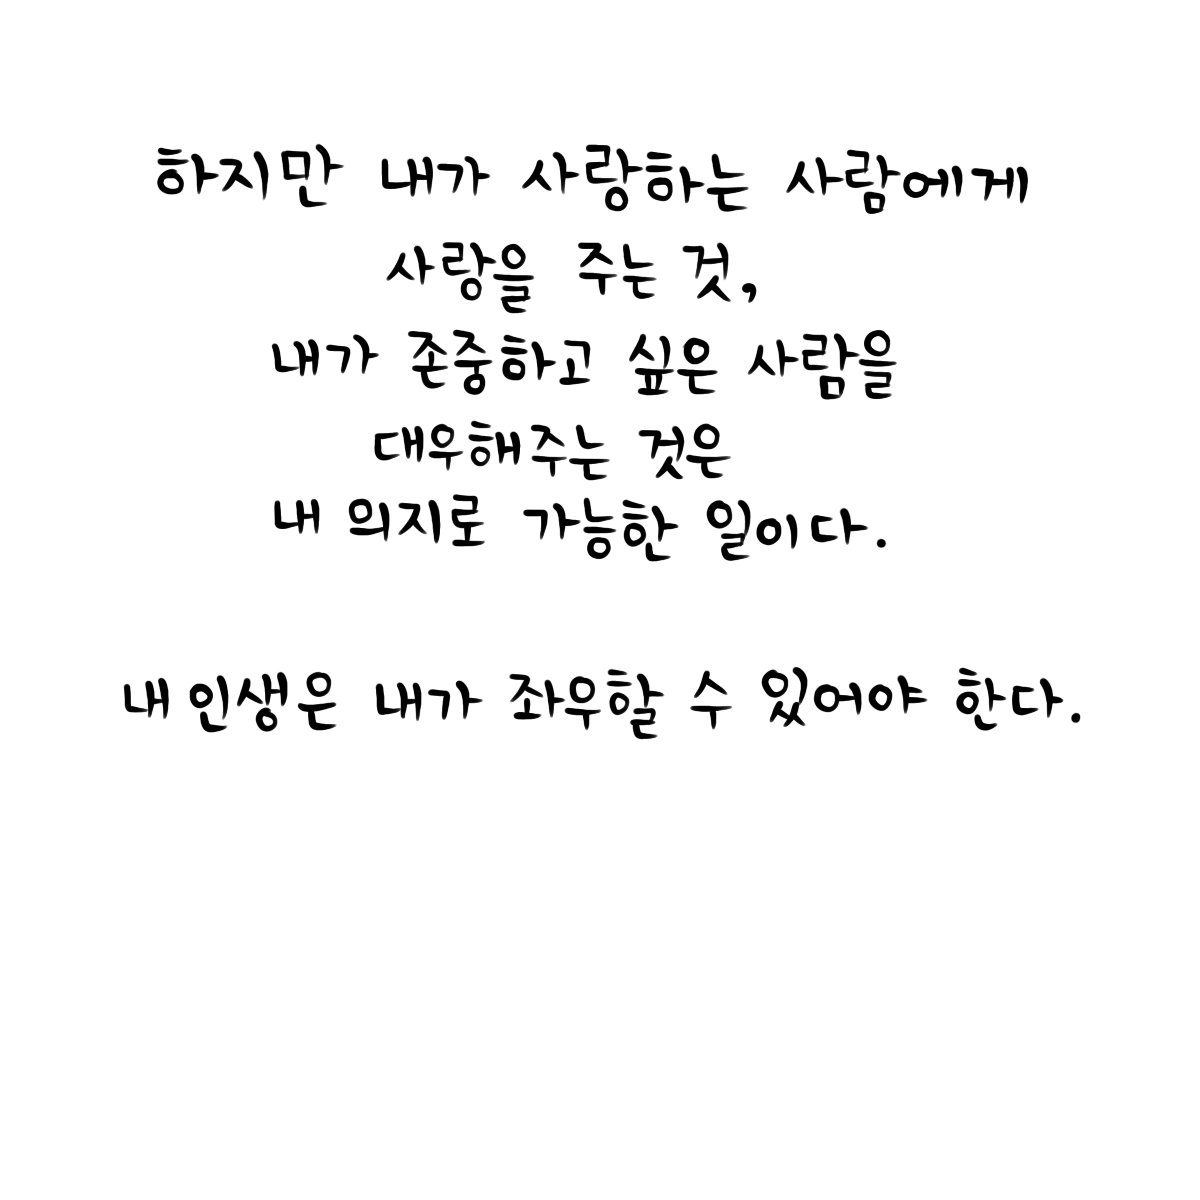 하지만 내가 사랑하는 사람에게
사랑을 주는 것,
내가 존중하고 싶은 사람을
대우해주는 것은
내 의지로 가능한 일이다.
내 인생은 내가 좌우할 수 있어야 한다.